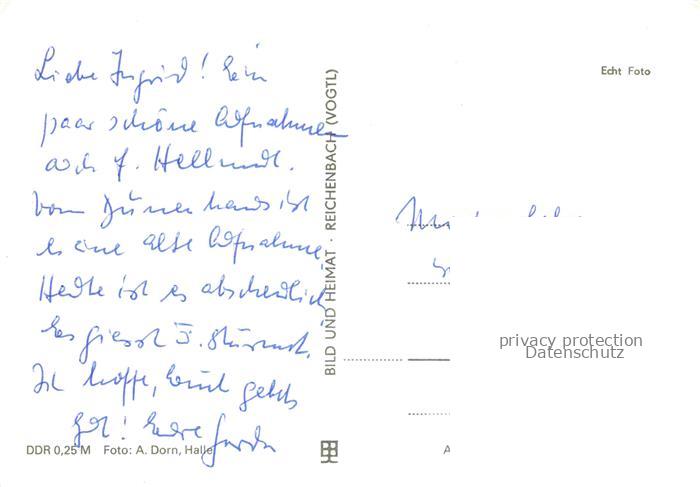 Liebe Ingrid! Ein
paar schöne Aufnahmen
auch f. Hellmut.
Vom Dünenhaus ist
es eine alte Aufnahme.
Heute ist es abscheulich
Es giesst u. stürmt.
Ich hoffe, Euch gehts
gut! Eure
DDR 0,25 M Foto: A. Dorn, Halle
BILD UND HEIMAT · REICHENBACH (VOGTL)
Echt Foto
privacy protection
Datenschutz
A